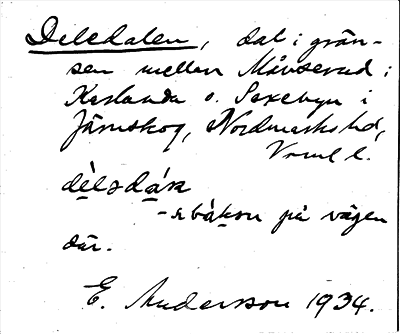 Deledalen, dal i grän-
sen mellan Månserud i
Karlanda o. Saxebyn i
Järnskog, Nordmarks hd,
Vrml l.
dèlədàɳ
-backen på vägen
där.
E. Andersson 1934.